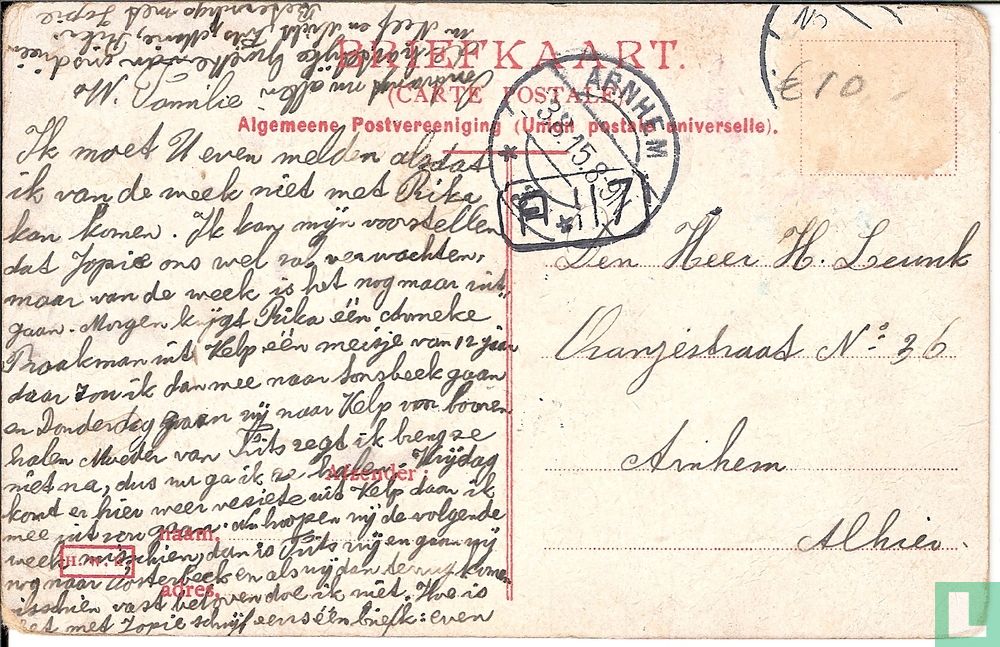 BRIEFKAART.
(CARTE POSTALE)
Algemeene Postvereeniging (Union postale universelle).
ARNHEM
3.8.15.8-9
€10
N. Familie
Ik moet U even melden alsdat
ik van de week niet met Rika
kan komen. Ik kan mijn voorstellen
dat Jopie ons wel zal verwachten,
maar van de week is het nog maar uit-
gaan. Morgen krijgt Rika één
Braakman uit Velp één meisje van 12 jaar
daar zou ik dan mee naar Sonsbeek gaan
en Donderdag gaan wij naar Velp
halen Moeder van Frits zegt ik breng ze
niet na, dus nu ga ik ze halen. Vrijdag
komt er hier weer vesiete uit Velp daar ik
mee uit zou gaan. Nu hoopen wij de volgende
week misschien, dan is Frits vrij en gaan wij
nog naar Oosterbeek en als wij dan terug komen
misschien vast beloven doe ik niet. Hoe is
het met Jopie schrijf eens één briefk: even
Afzender:
naam.
adres.
Den Heer H. Leunk
Oranjestraat No. 36
Arnhem
Alhier.
L